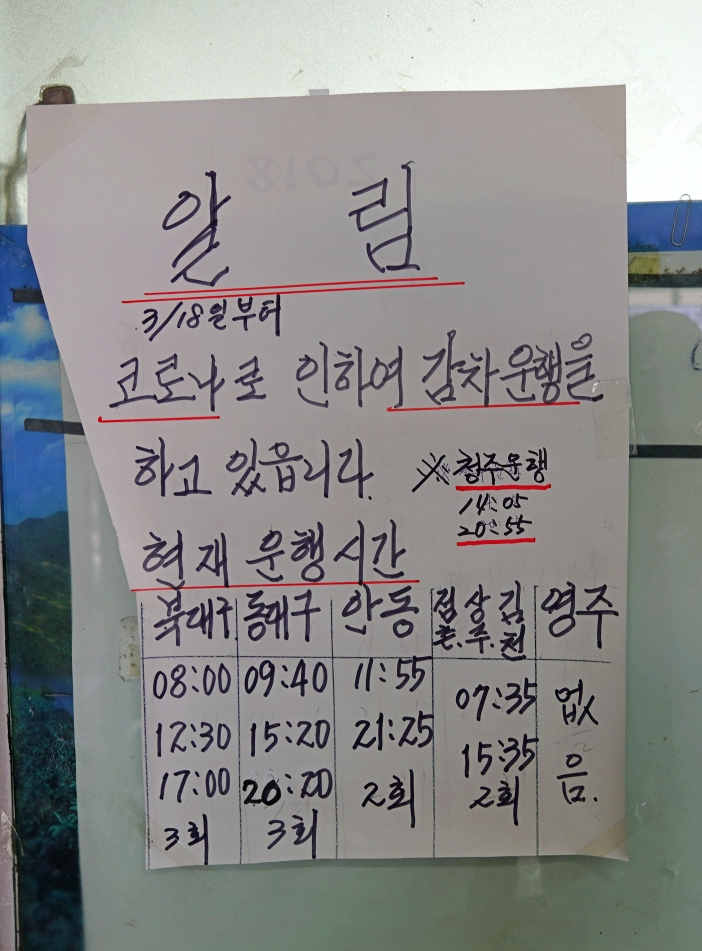 알 림
3/18일부터
코로나로 인하여 감차운행을
하고 있읍니다.
※ 청주운행
14:05
20:55
현재 운행시간
북대구 동대구 안동 점촌.상주.김천 영주
08:00 09:40 11:55 07:35 없음.
12:30 15:20 21:25 15:35
17:00 20:20 2회 2회
3회 3회